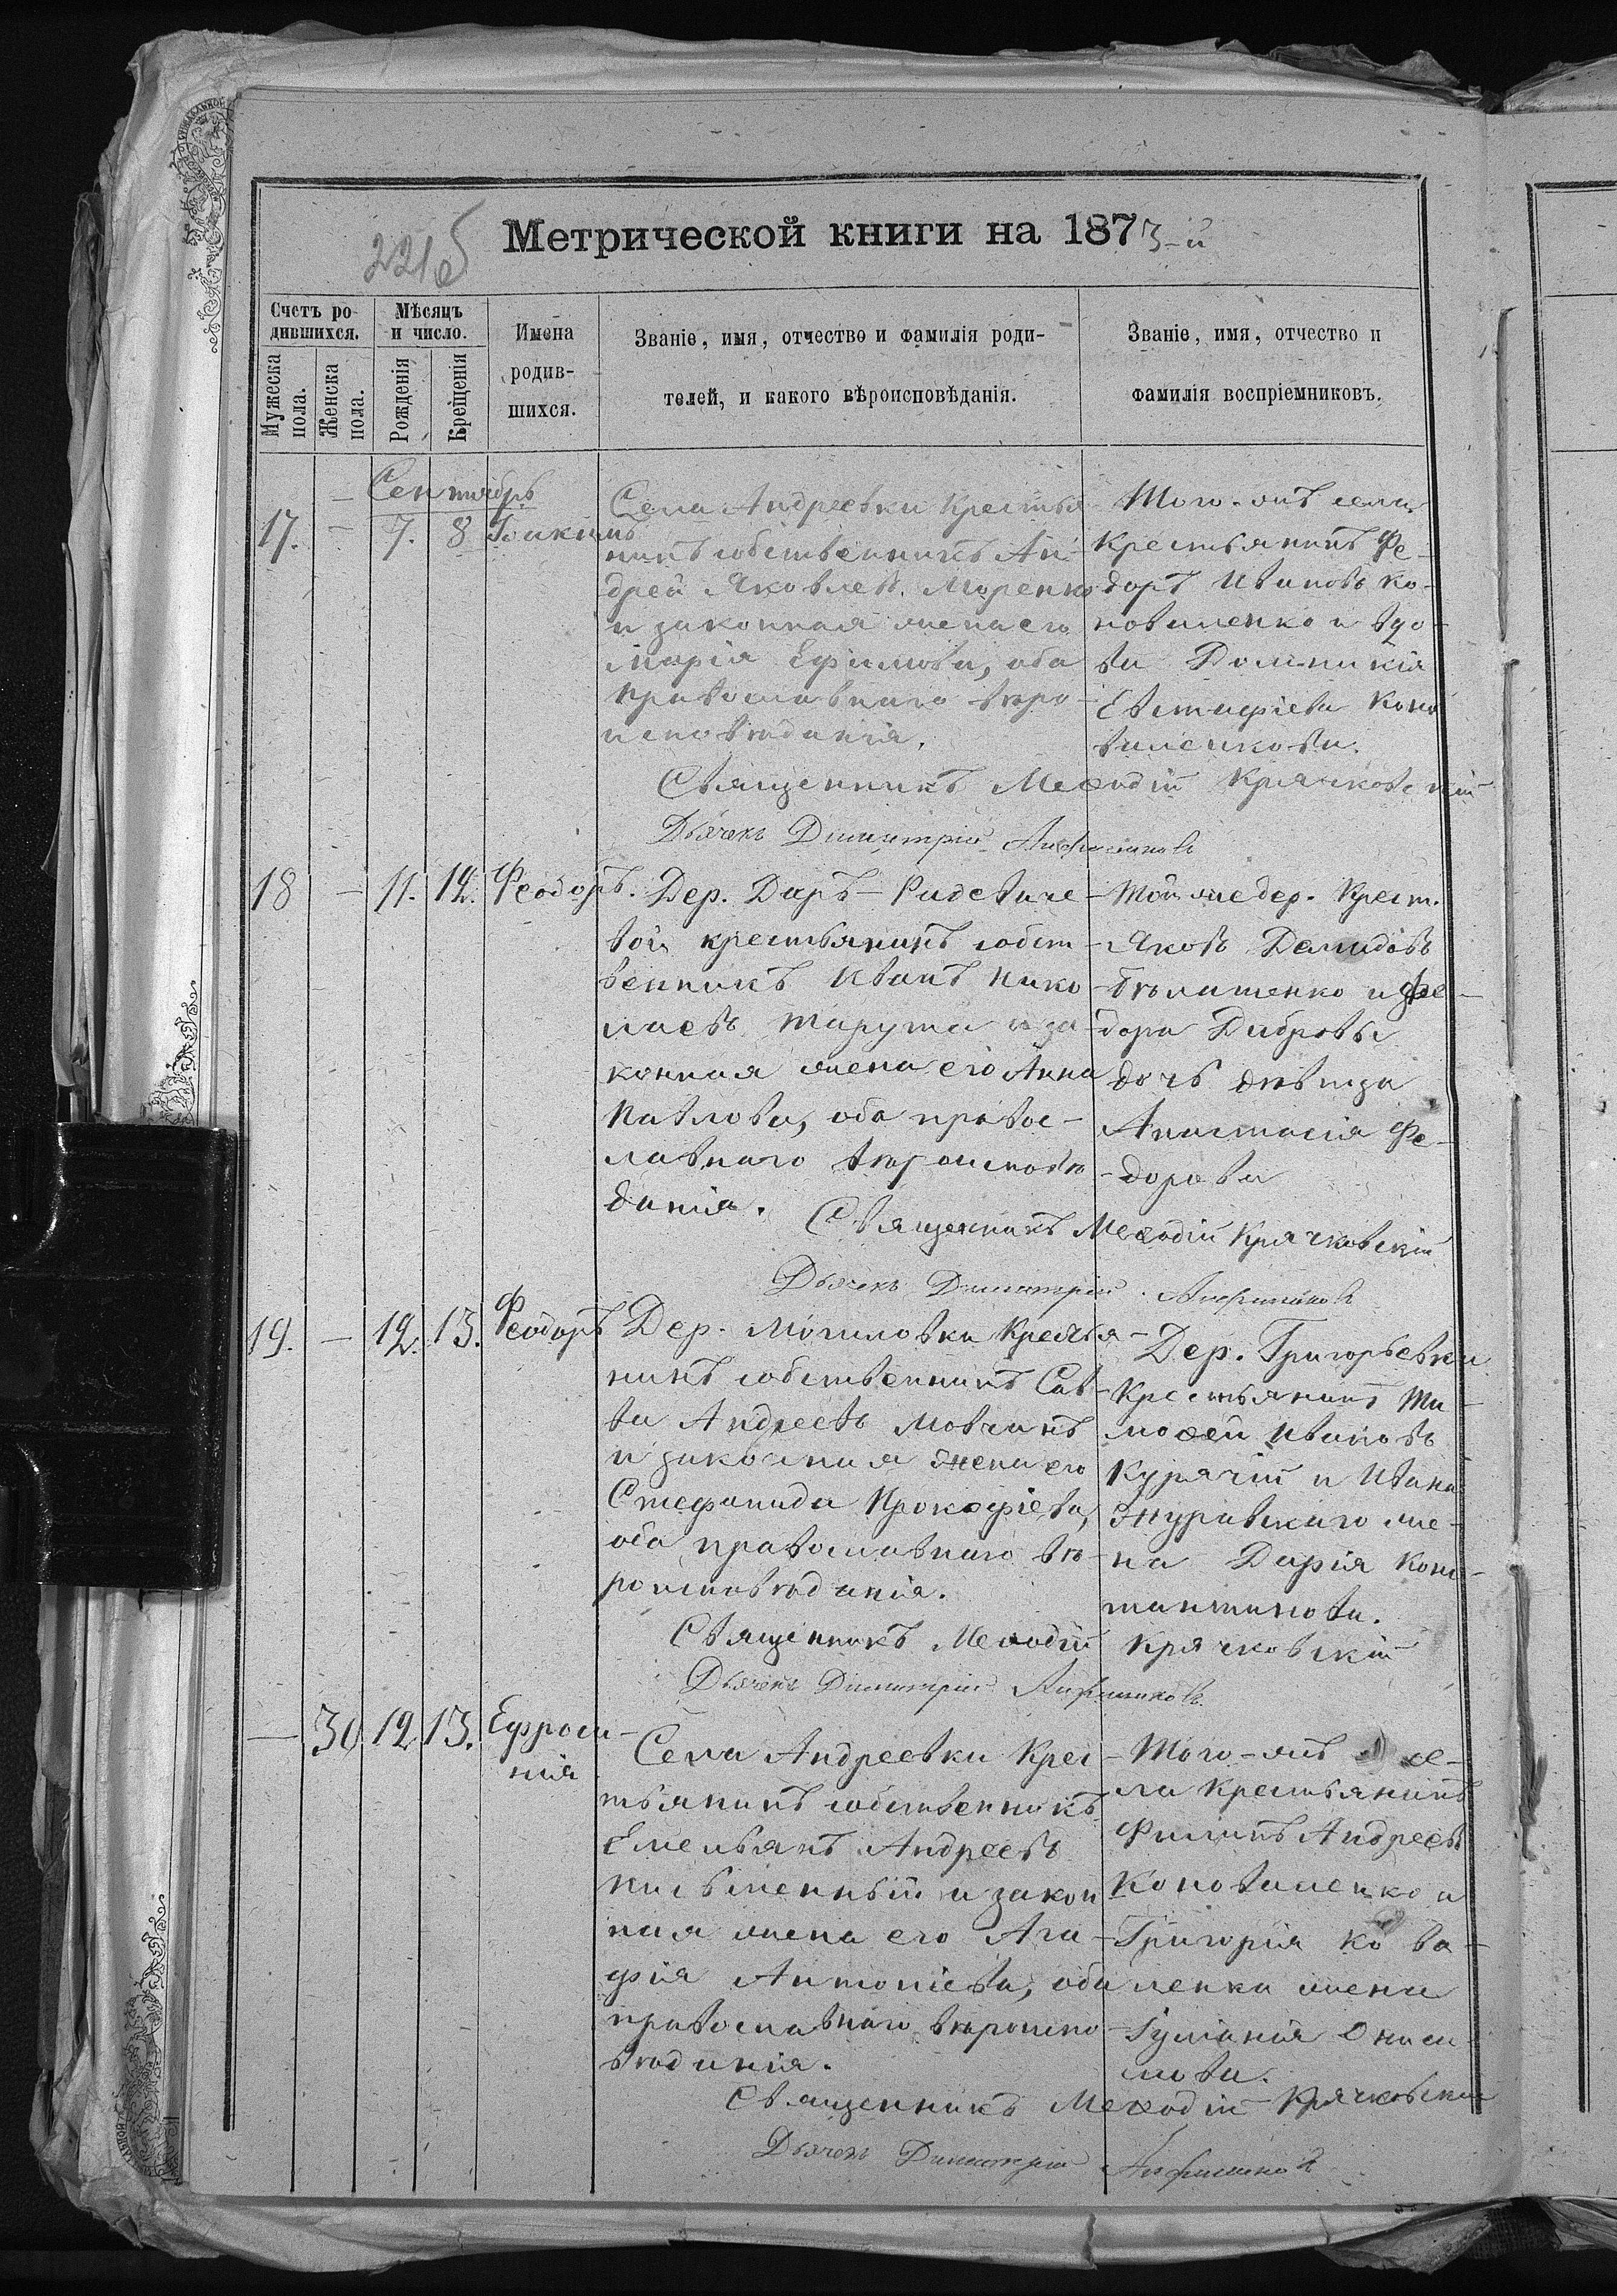 221об
Метрической книги на 1873-й
Счетъ ро-
дившихся.
Мужеска
пола.
Женска
пола.
Мѣсяцъ
и число.
Рожденія
Крещенія
Имена
родив-
шихся.
Званіе, имя, отчество и фамилія роди-
телей, и какого вѣроисповѣданія.
Званіе, имя, отчество и
фамилія воспріемниковъ.
Сентябрь
17. – 7. 8 Іоакимъ
Села Андреевки крестья
нинъ собственникъ Ан-
дрей Яковлевъ Моренко
и законная жена его
Марія Ефимова, оба
православнаго вѣро-
исповѣданія.
Того-жъ села
крестьянинъ Фе-
доръ Ивановъ Ко-
новаленко и вдо-
ва Домникія
Евстафіева Коно
валенкова.
Священникъ Меѳодій Крячковскій
Дьячекъ Димитрій
18 – 11. 12. Феодоръ.
Дер. Даръ-Радевиче-
вой крестьянинъ собст-
венникъ Иванъ Нико
лаевъ Тарута и за-
конная жена его Анна
Павлова, оба правос-
лавнаго вѣроисповѣ
данія.
Той же дер. крест.
Яковъ Демидовъ
Бѣлашенко и Фе-
дора Дибровы
дочь дѣвица
Анастасія Фе-
дорова
Священникъ Меѳодій Крячковскій
Дьячекъ Димитрій
19. – 12. 13. Феодоръ
Дер. Могиловки крестья-
нинъ собственникъ Сав-
ва Андреевъ Мовчанъ
и законная жена его
Стефанида Прокофіева,
оба православнаго вѣ-
роисповѣданія.
Дер. Григорьевки
крестьянинъ Ти-
моѳей Ивановъ
Курячій и Ивана
Журавскаго же-
на Дарія Конс-
тантинова.
Священникъ Меѳодій Крячковскій
Дьячекъ Димитрій
– 30 12 13. Ефроси-
нія
Села Андреевки крес-
тьянинъ собственникъ
Емельянъ Андреевъ
Письменный и закон
ная жена его Ага-
фія Антоніева, оба
православнаго вѣроиспо-
вѣданія.
Того-жъ се-
ла крестьянинъ
Филипъ Андреевъ
Коноваленко и
Григорія Кова-
ленка жена
ІуліаніяОниси-
мова.
Священникъ Меѳодій Крячковскій
Дьячекъ Димитрій